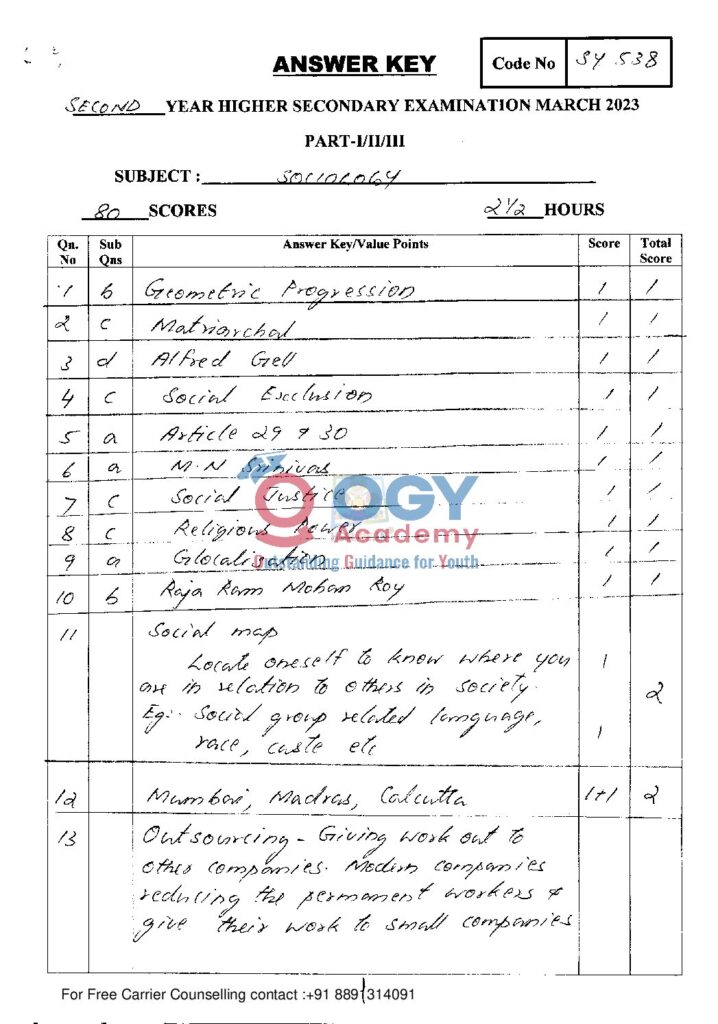 ANSWER KEY
Code No SY 538
SECOND YEAR HIGHER SECONDARY EXAMINATION MARCH 2023
PART-I/II/III
SUBJECT : SOCIOLOGY
80 SCORES 2 1/2 HOURS
Qn. No Sub Qns Answer Key/Value Points Score Total Score
1 b Geometric Progression 1 1
2 c Matriarchal 1 1
3 d Alfred Gell 1 1
4 c Social Exclusion 1 1
5 a Article 29 & 30 1 1
6 a M.N Srinivas 1 1
7 c Social Justice 1 1
8 c Religious Power 1 1
9 a Glocalisation 1 1
10 b Raja Ram Mohan Roy 1 1
OGY
Academy
Outstanding Guidance for Youth
11 Social map
Locate oneself to know where you 1
are in relation to others in society. 2
Eg:- Social group related language, 1
race, caste etc
12 Mumbai, Madras, Calcutta 1+1 2
13 Outsourcing - Giving work out to
other companies. Modern companies
reducing the permanent workers &
give their work to small companies
For Free Carrier Counselling contact :+91 8891314091